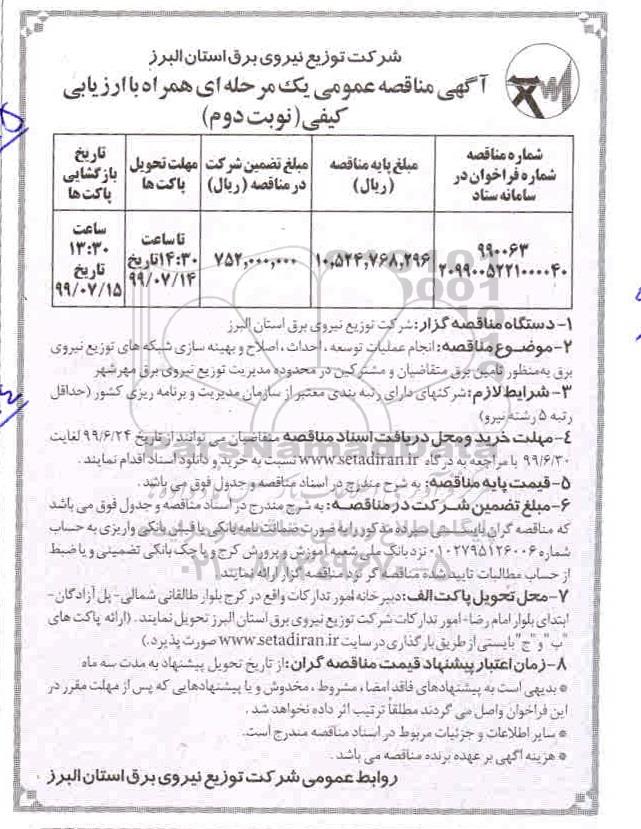 شرکت توزیع نیروی برق استان البرز
آگهی مناقصه عمومی یک مرحله ای همراه با ارزیابی
کیفی (نوبت دوم)
شماره مناقصه
شماره فراخوان در
سامانه ستاد
مبلغ پایه مناقصه
(ریال)
مبلغ تضمین شرکت
در مناقصه (ریال)
مهلت تحویل
پاکت ها
تاریخ
بازگشایی
پاکت ها
۹۹۰۰۶۳
۲۰۹۹۰۰۵۲۲۱۰۰۰۰۴۰
۱۰,۵۲۴,۷۶۸,۲۹۶
۷۵۲,۰۰۰,۰۰۰
تا ساعت
۱۴:۳۰ تاریخ
۹۹/۰۷/۱۴
ساعت
۱۳:۳۰
تاریخ
۹۹/۰۷/۱۵
۱- دستگاه مناقصه گزار: شرکت توزیع نیروی برق استان البرز
۲- موضوع مناقصه: انجام عملیات توسعه، احداث، اصلاح و بهینه سازی شبکه های توزیع نیروی
برق به‌منظور تامین برق متقاضیان و مشترکین در محدوده مدیریت توزیع نیروی برق مهرشهر
۳- شرایط لازم: شرکتهای دارای رتبه بندی معتبر از سازمان مدیریت و برنامه ریزی کشور (حداقل
رتبه ۵ رشته نیرو)
۴- مهلت خرید و محل دریافت اسناد مناقصه متقاضیان می توانند از تاریخ ۹۹/۶/۲۴ لغایت
۹۹/۶/۳۰ با مراجعه به درگاه www.setadiran.ir نسبت به خرید و دانلود اسناد اقدام نمایند.
۵- قیمت پایه مناقصه: به شرح مندرج در اسناد مناقصه و جدول فوق می باشد.
۶- مبلغ تضمین شرکت در مناقصه: به شرح مندرج در اسناد مناقصه و جدول فوق می باشد
که مناقصه گران بایستی سپرده مذکور را به صورت ضمانت نامه بانکی یا فیش بانکی واریزی به حساب
شماره ۰۱۰۲۷۹۵۱۲۶۰۰۶ نزد بانک ملی شعبه آموزش و پرورش کرج و یا چک بانکی تضمینی و یا ضبط
از حساب مطالبات تایید شده مناقصه گر نزد مناقصه گزار ارائه نمایند.
۷- محل تحویل پاکت الف: دبیرخانه امور تدارکات واقع در کرج بلوار طالقانی شمالی- پل آزادگان-
ابتدای بلوار امام رضا- امور تدارکات شرکت توزیع نیروی برق استان البرز تحویل نمایند. (ارائه پاکت های
"ب" و "ج" بایستی از طریق بارگذاری در سایت www.setadiran.ir صورت پذیرد.)
۸- زمان اعتبار پیشنهاد قیمت مناقصه گران: از تاریخ تحویل پیشنهاد به مدت سه ماه
* بدیهی است به پیشنهادهای فاقد امضا، مشروط، مخدوش و یا پیشنهادهایی که پس از مهلت مقرر در
این فراخوان واصل می گردند مطلقا ترتیب اثر داده نخواهد شد.
* سایر اطلاعات و جزئیات مربوط در اسناد مناقصه مندرج است.
* هزینه آگهی بر عهده برنده مناقصه می باشد.
روابط عمومی شرکت توزیع نیروی برق استان البرز